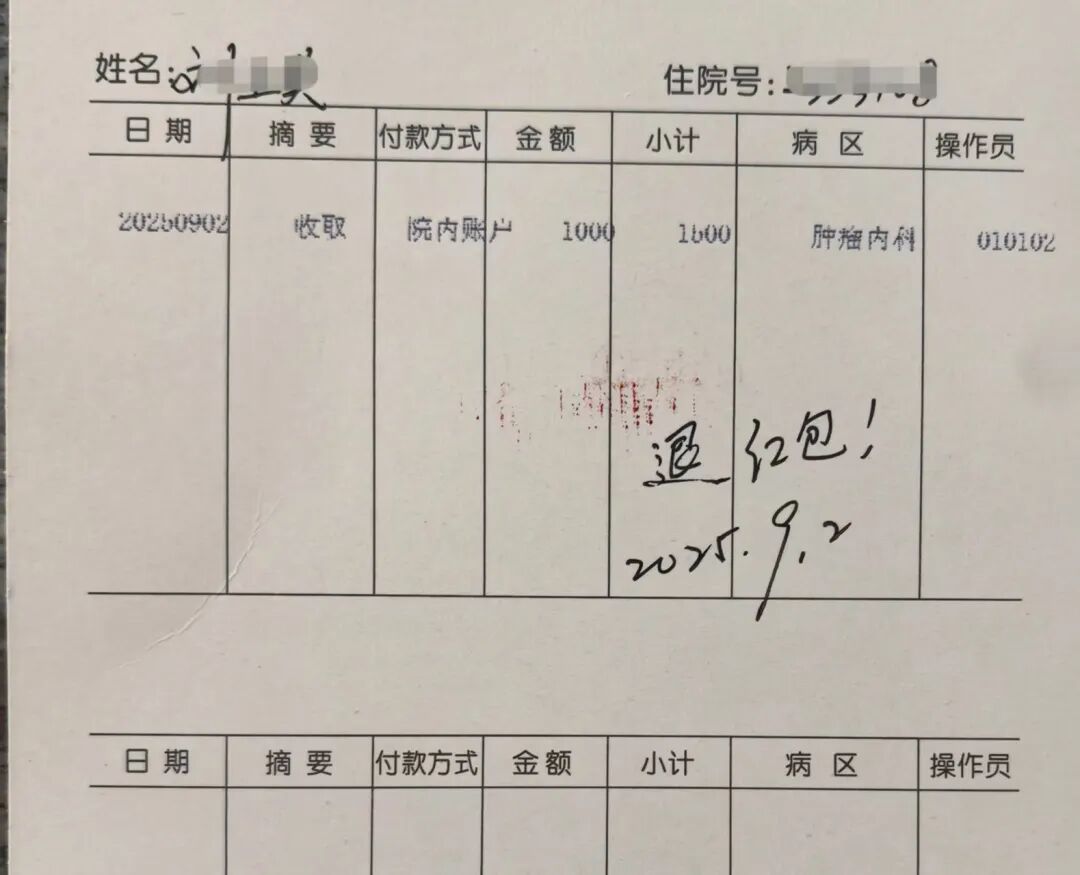 姓名:
住院号:
日期 摘要 付款方式 金额 小计 病区 操作员
20250902 收取 院内账户 1000 1500 肿瘤内科 010102
退红包!
2025.9.2
日期 摘要 付款方式 金额 小计 病区 操作员